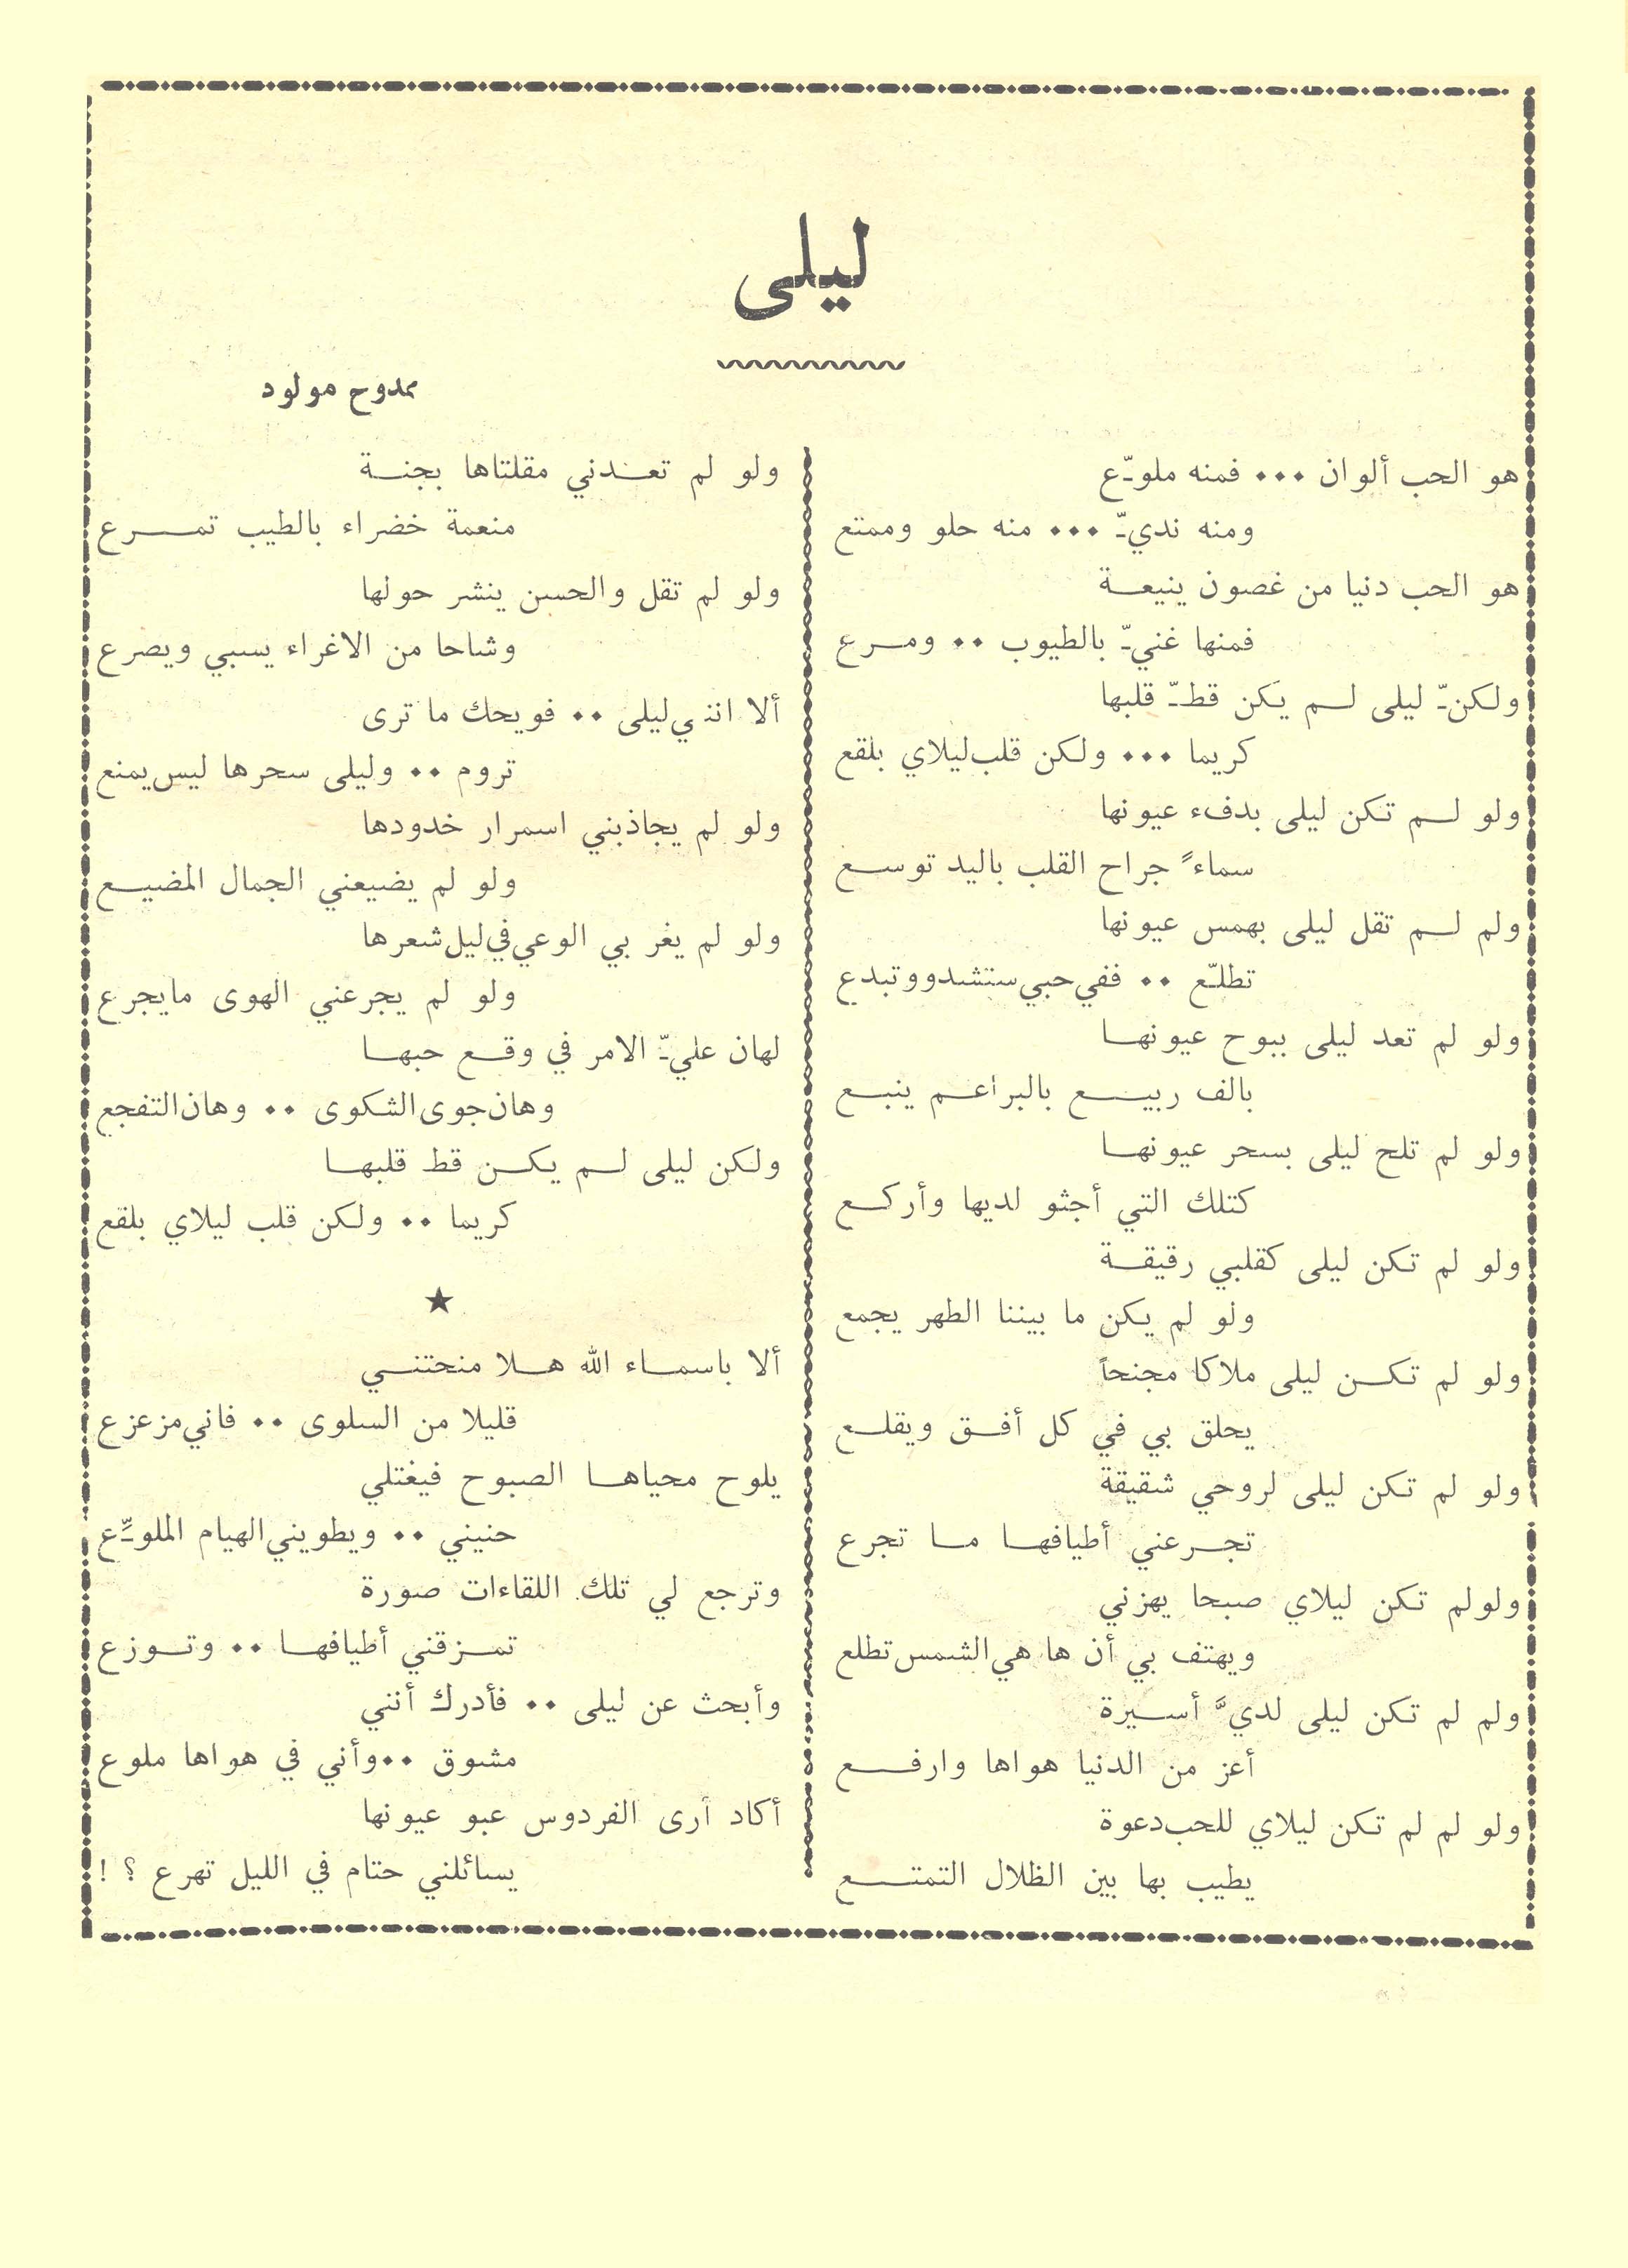 ليلى
ممدوح مولود
هو الحب ألوان ... فمنه ملوّع
ومنه نديّ ... منه حلو وممتع
هو الحب دنيا من غصون ينيعة
فمنها غنيّ بالطيوب .. ومرع
ولكنّ ليلى لم يكن قطّ قلبها
كريما ... ولكن قلب ليلاي بلقع
ولو لم تكن ليلى بدفء عيونها
سماءً جراح القلب باليد توسع
ولم لم تقل ليلى بهمس عيونها
تطلّع .. ففي حبي ستشدو وتبدع
ولو لم تعد ليلى ببوح عيونها
بالف ربيع بالبراعم ينبع
ولو لم تلح ليلى بسحر عيونها
كتلك التي أجثو لديها وأركع
ولو لم تكن ليلى كقلبي رقيقة
ولو لم يكن ما بيننا الطهر يجمع
ولو لم تكن ليلى ملاكا مجنحاً
يحلق بي في كل أفق ويقلع
ولو لم تكن ليلى لروحي شقيقة
تجرعني أطيافها ما تجرع
ولو لم تكن ليلاي صبحا يهزني
ويهتف بي أن ها هي الشمس تطلع
ولم لم تكن ليلى لديَّ أسيرة
أعز من الدنيا هواها وارفع
ولو لم لم تكن ليلاي للحب دعوة
يطيب بها بين الظلال التمتع
ولو لم تعدني مقلتاها بجنة
منعمة خضراء بالطيب تمرع
ولو لم تقل والحسن ينشر حولها
وشاحا من الاغراء يسبي ويصرع
ألا انني ليلى .. فويحك ما ترى
تروم .. وليلى سحرها ليس يمنع
ولو لم يجاذبني اسمرار خدودها
ولو لم يضيعني الجمال المضيع
ولو لم يغر بي الوعي في ليل شعرها
ولو لم يجرعني الهوى ما يجرع
لهان عليّ الامر في وقع حبها
وهان جوى الشكوى .. وهان التفجع
ولكن ليلى لم يكن قط قلبها
كريما .. ولكن قلب ليلاي بلقع
★
ألا باسماء الله هلا منحتني
قليلا من السلوى .. فاني مزعزع
يلوح محياها الصبوح فيغتلي
حنيني .. ويطويني الهيام الملوِّع
وترجع لي تلك اللقاءات صورة
تمزقني أطيافها .. وتوزع
وأبحث عن ليلى .. فأدرك أنني
مشوق .. وأني في هواها ملوع
أكاد أرى الفردوس عبو عيونها
يسائلني حتام في الليل تهرع ؟ !